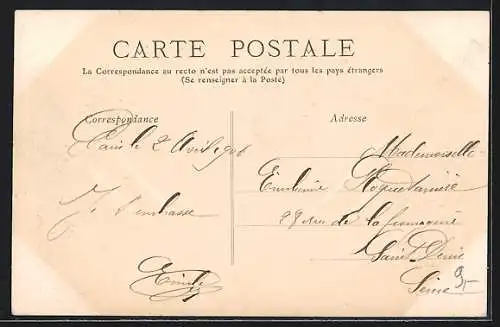 CARTE POSTALE
La Correspondance au recto n'est pas acceptée par tous les pays étrangers
(Se renseigner à la Poste)
Correspondance
Adresse
Paris le 2 Avril 1906
Je t'embrasse
Emile
Mademoiselle
rue de la
Saint Denis
Seine
9,-